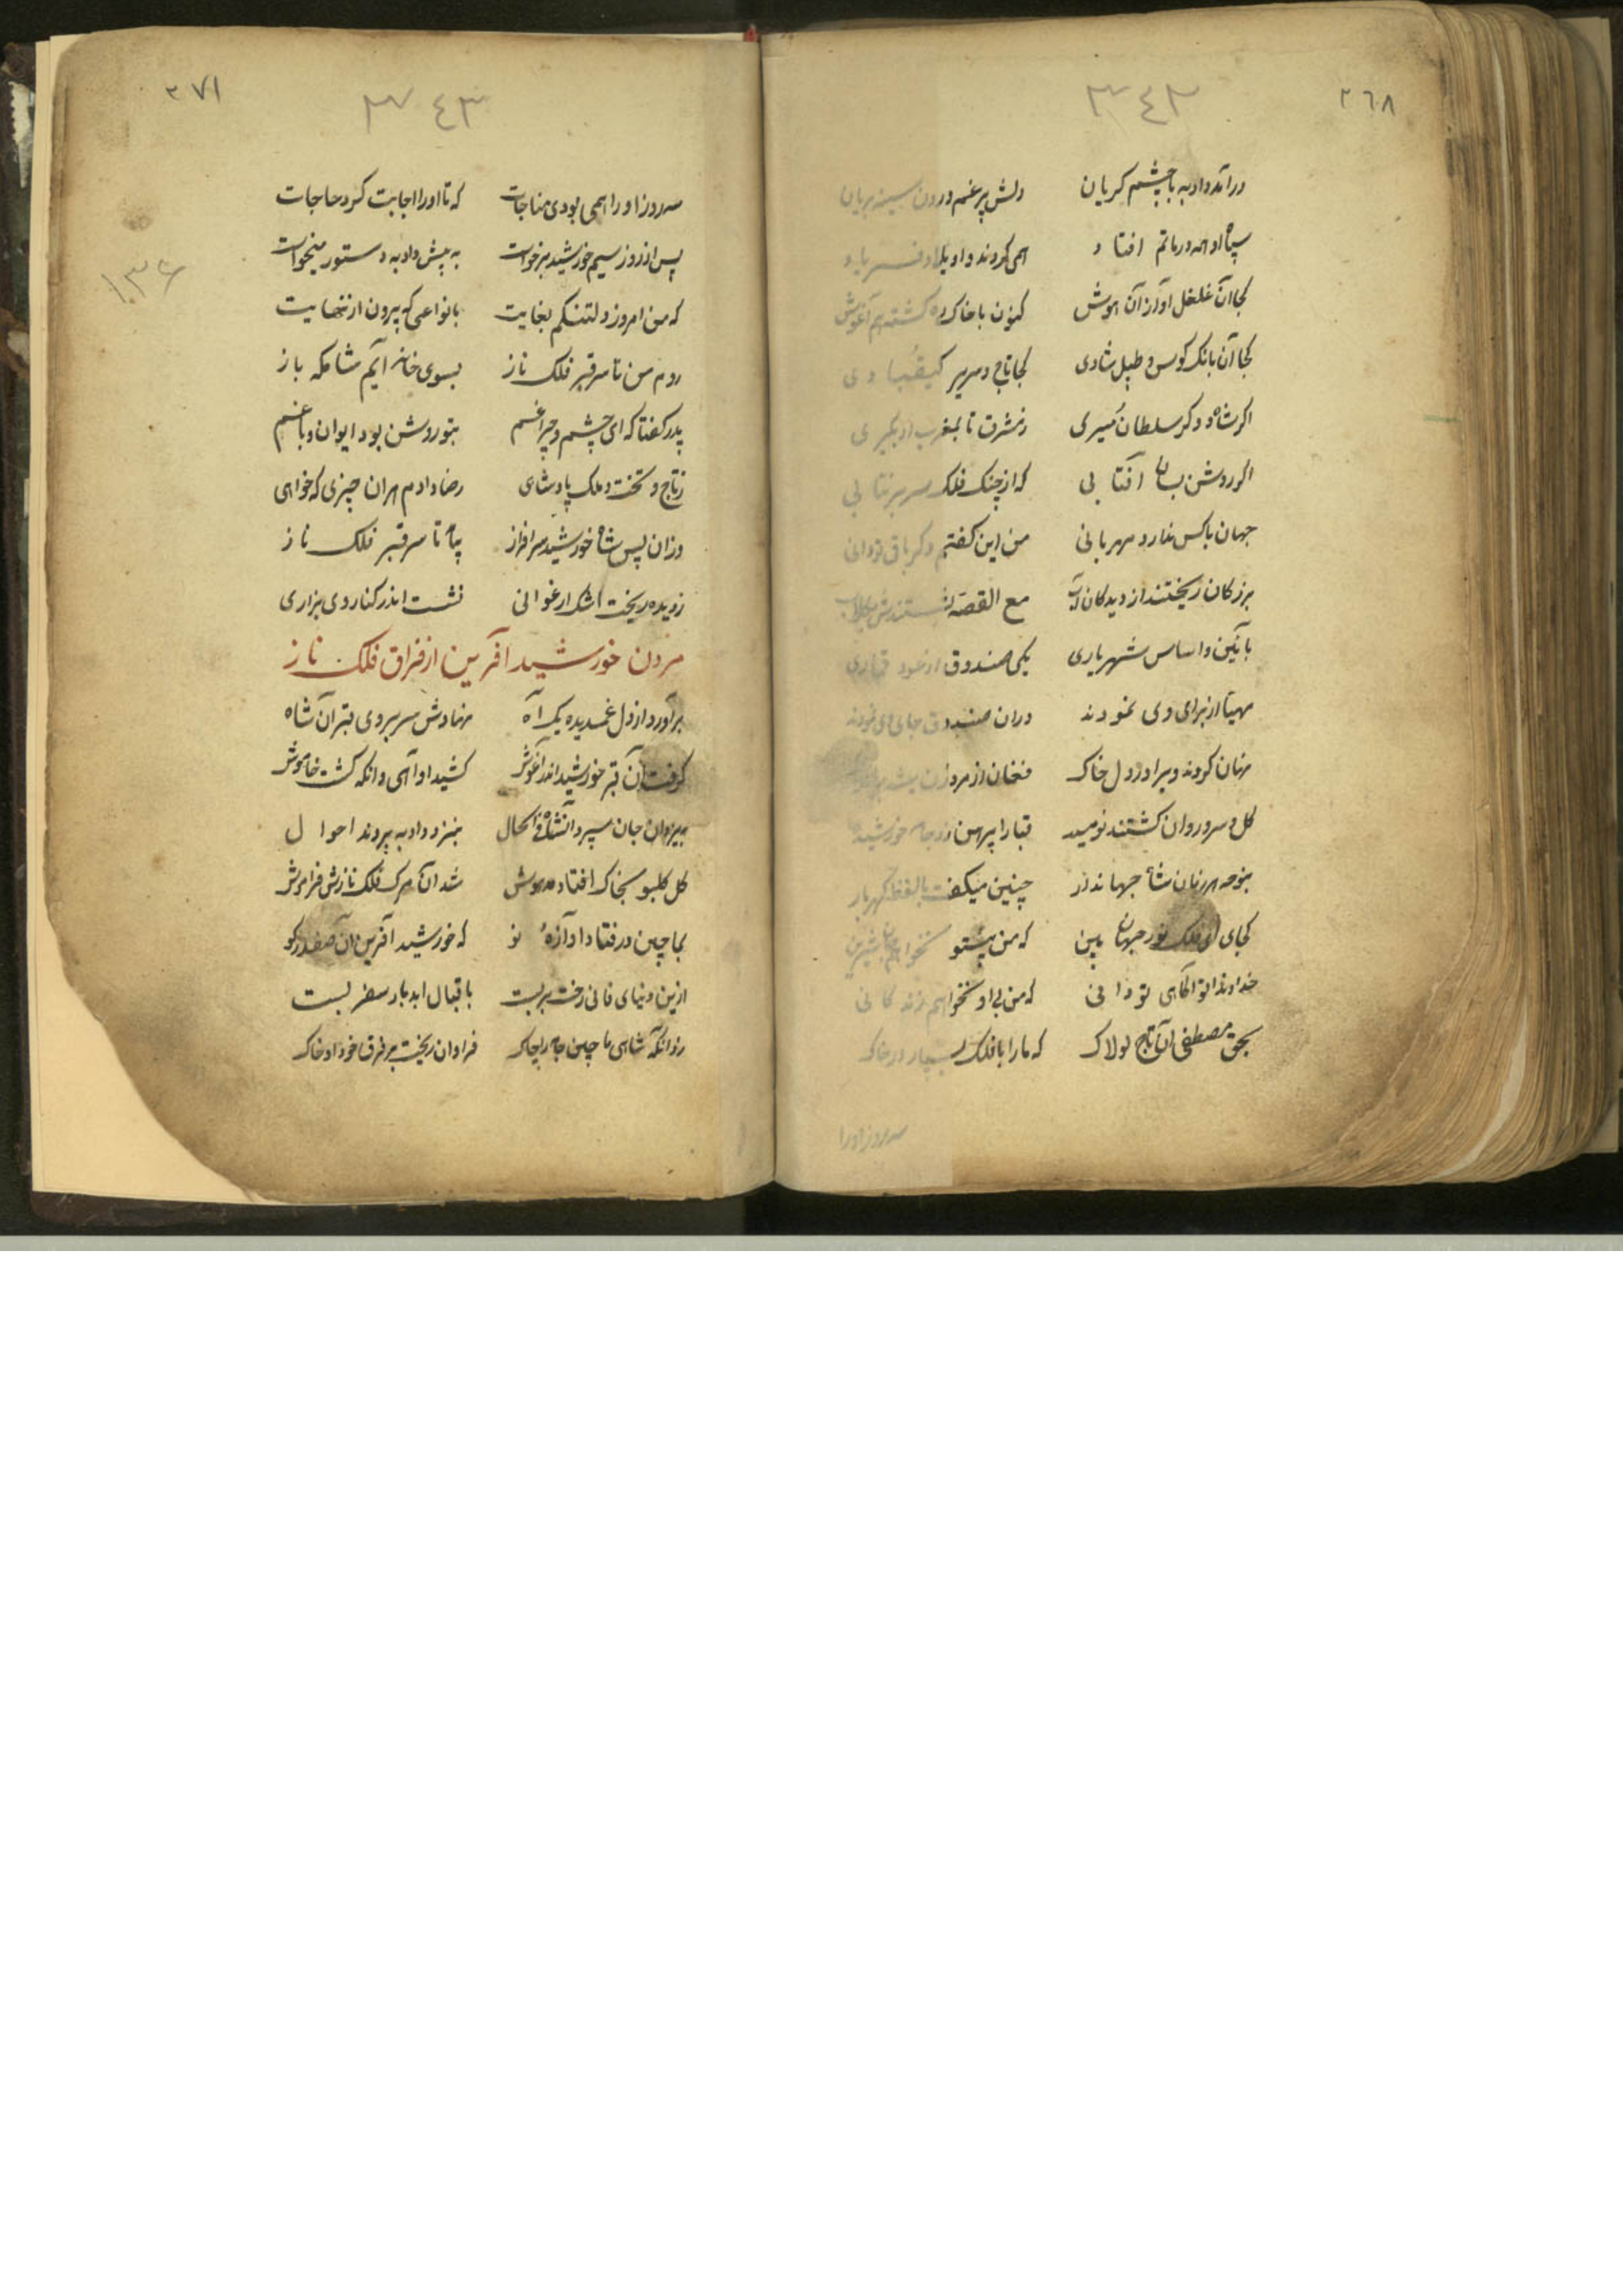 ٢٦٨
٣٤٢
درآمد دادبه با چشم کریان دلش پر غم درون سینه بریان
سپاه او همه در ماتم افتاد همی کردند واویلا و فریاد
کجا آن غلغل و آواز آن هوش کنون با خاک ره کشته هم آغوش
کجا آن بانک کوس و طبل شادی کجا تاج و سریر کیقبادی
اکر شاه و دکر سلطان میری ز مشرق تا بمغرب ار بکیری
اکر روشن بسان آفتابی که از چنک فلک سر بر نتابی
جهان با کس ندارد مهربانی من این کفتم دکر باقی تو دانی
بزرکان ریختند از دیدکان آب مع القصه بشستندش بکلاب
بآئین و اساس شهریاری یکی صندوق از عود قماری
مهیا از برای وی نمودند در آن صندوق جای وی نمودند
نهان کردند ویرا در دل خاک فغان از مرد و زن شد بر
کل و سرو روان کشتند نومید قبا را پیرهن زد جامه خورشید
بنوحه هر زمان شاه جهاندار چنین میکفت با لفظ کهربار
کجای ای فلک نور جهان بین که من بیتو نخواهم جان شیرین
خداوندا تو آکاهی تو دانی که من بی او نخواهم زندکانی
بحق مصطفی آن تاج لولاک که ما را با فلک بسپار در خاک
سه روز او را
٢٧١
٣٤٣
١٣٦
سه روز او را همی بودی مناجات که تا او را اجابت کرد حاجات
پس از روز سیم خورشید برخواست به پیش دادبه دستور میخواست
که من امروز دلتنکم بغایت بانواعی که بیرون از نهایت
روم من تا سر قبر فلک ناز بسوی خانه آیم شامکه باز
پدر کفتا که ای چشم و چراغم بتو روشن بود ایوان و باغم
ز تاج و تخت و ملک پادشاهی رضا دادم بهران چیزی که خواهی
وزان پس شاه خورشید سرافراز بیامد تا سر قبر فلک ناز
ز دیده ریخت اشک ارغوانی نشست اندر کنار وی بزاری
مردن خورشید آفرین از فراق فلک ناز
برآورد از دل غمدیده یک آه نهادش سر بروی قبر آن شاه
کرفت آن قبر خورشید اندر آغوش کشید او آهی و آنکه کشت خاموش
بیزدان جان سپرد آنشاه فی الحال بنزد دادبه بردند احوال
کل کلبو بخاک افتاد مدهوش شد آن مرک فلک نازش فراموش
بماچین در فتاد آوازهٔ نو که خورشید آفرین آن صفدر کو
ازین دنیای فانی رخت بربست باقبال ابد بار سفر بست
زد آنکه شاه ماچین جامه را چاک فراوان ریخت بر فرق خود او خاک